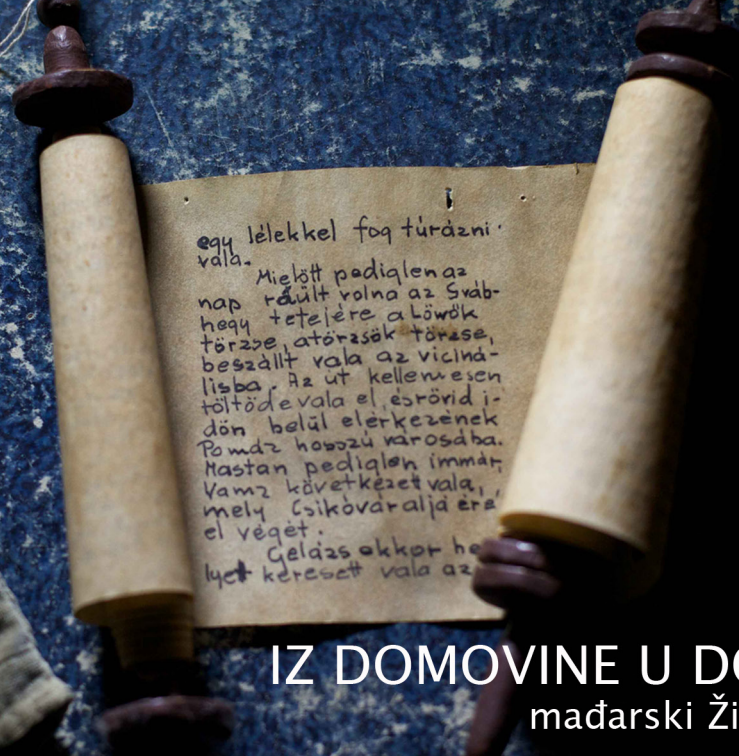 egy lélekkel fog túrázni.
vala.
Mielőtt pediglen az
nap ráült volna az Sváb-
hegy tetejére a Löwök
törzse, a törzsök törzse,
beszállt vala az viciná-
lisba. Az út kellemesen
töltőde vala el, és rövid i-
dőn belül elérkezének
Pomáz hosszú városába.
Mastan pediglen immár,
Vamz következett vala,
mely Csikóváraljáéra
el végét.
Gelázs okkor he
lyet keresett vala az
IZ DOMOVINE U DO
mađarski Ži